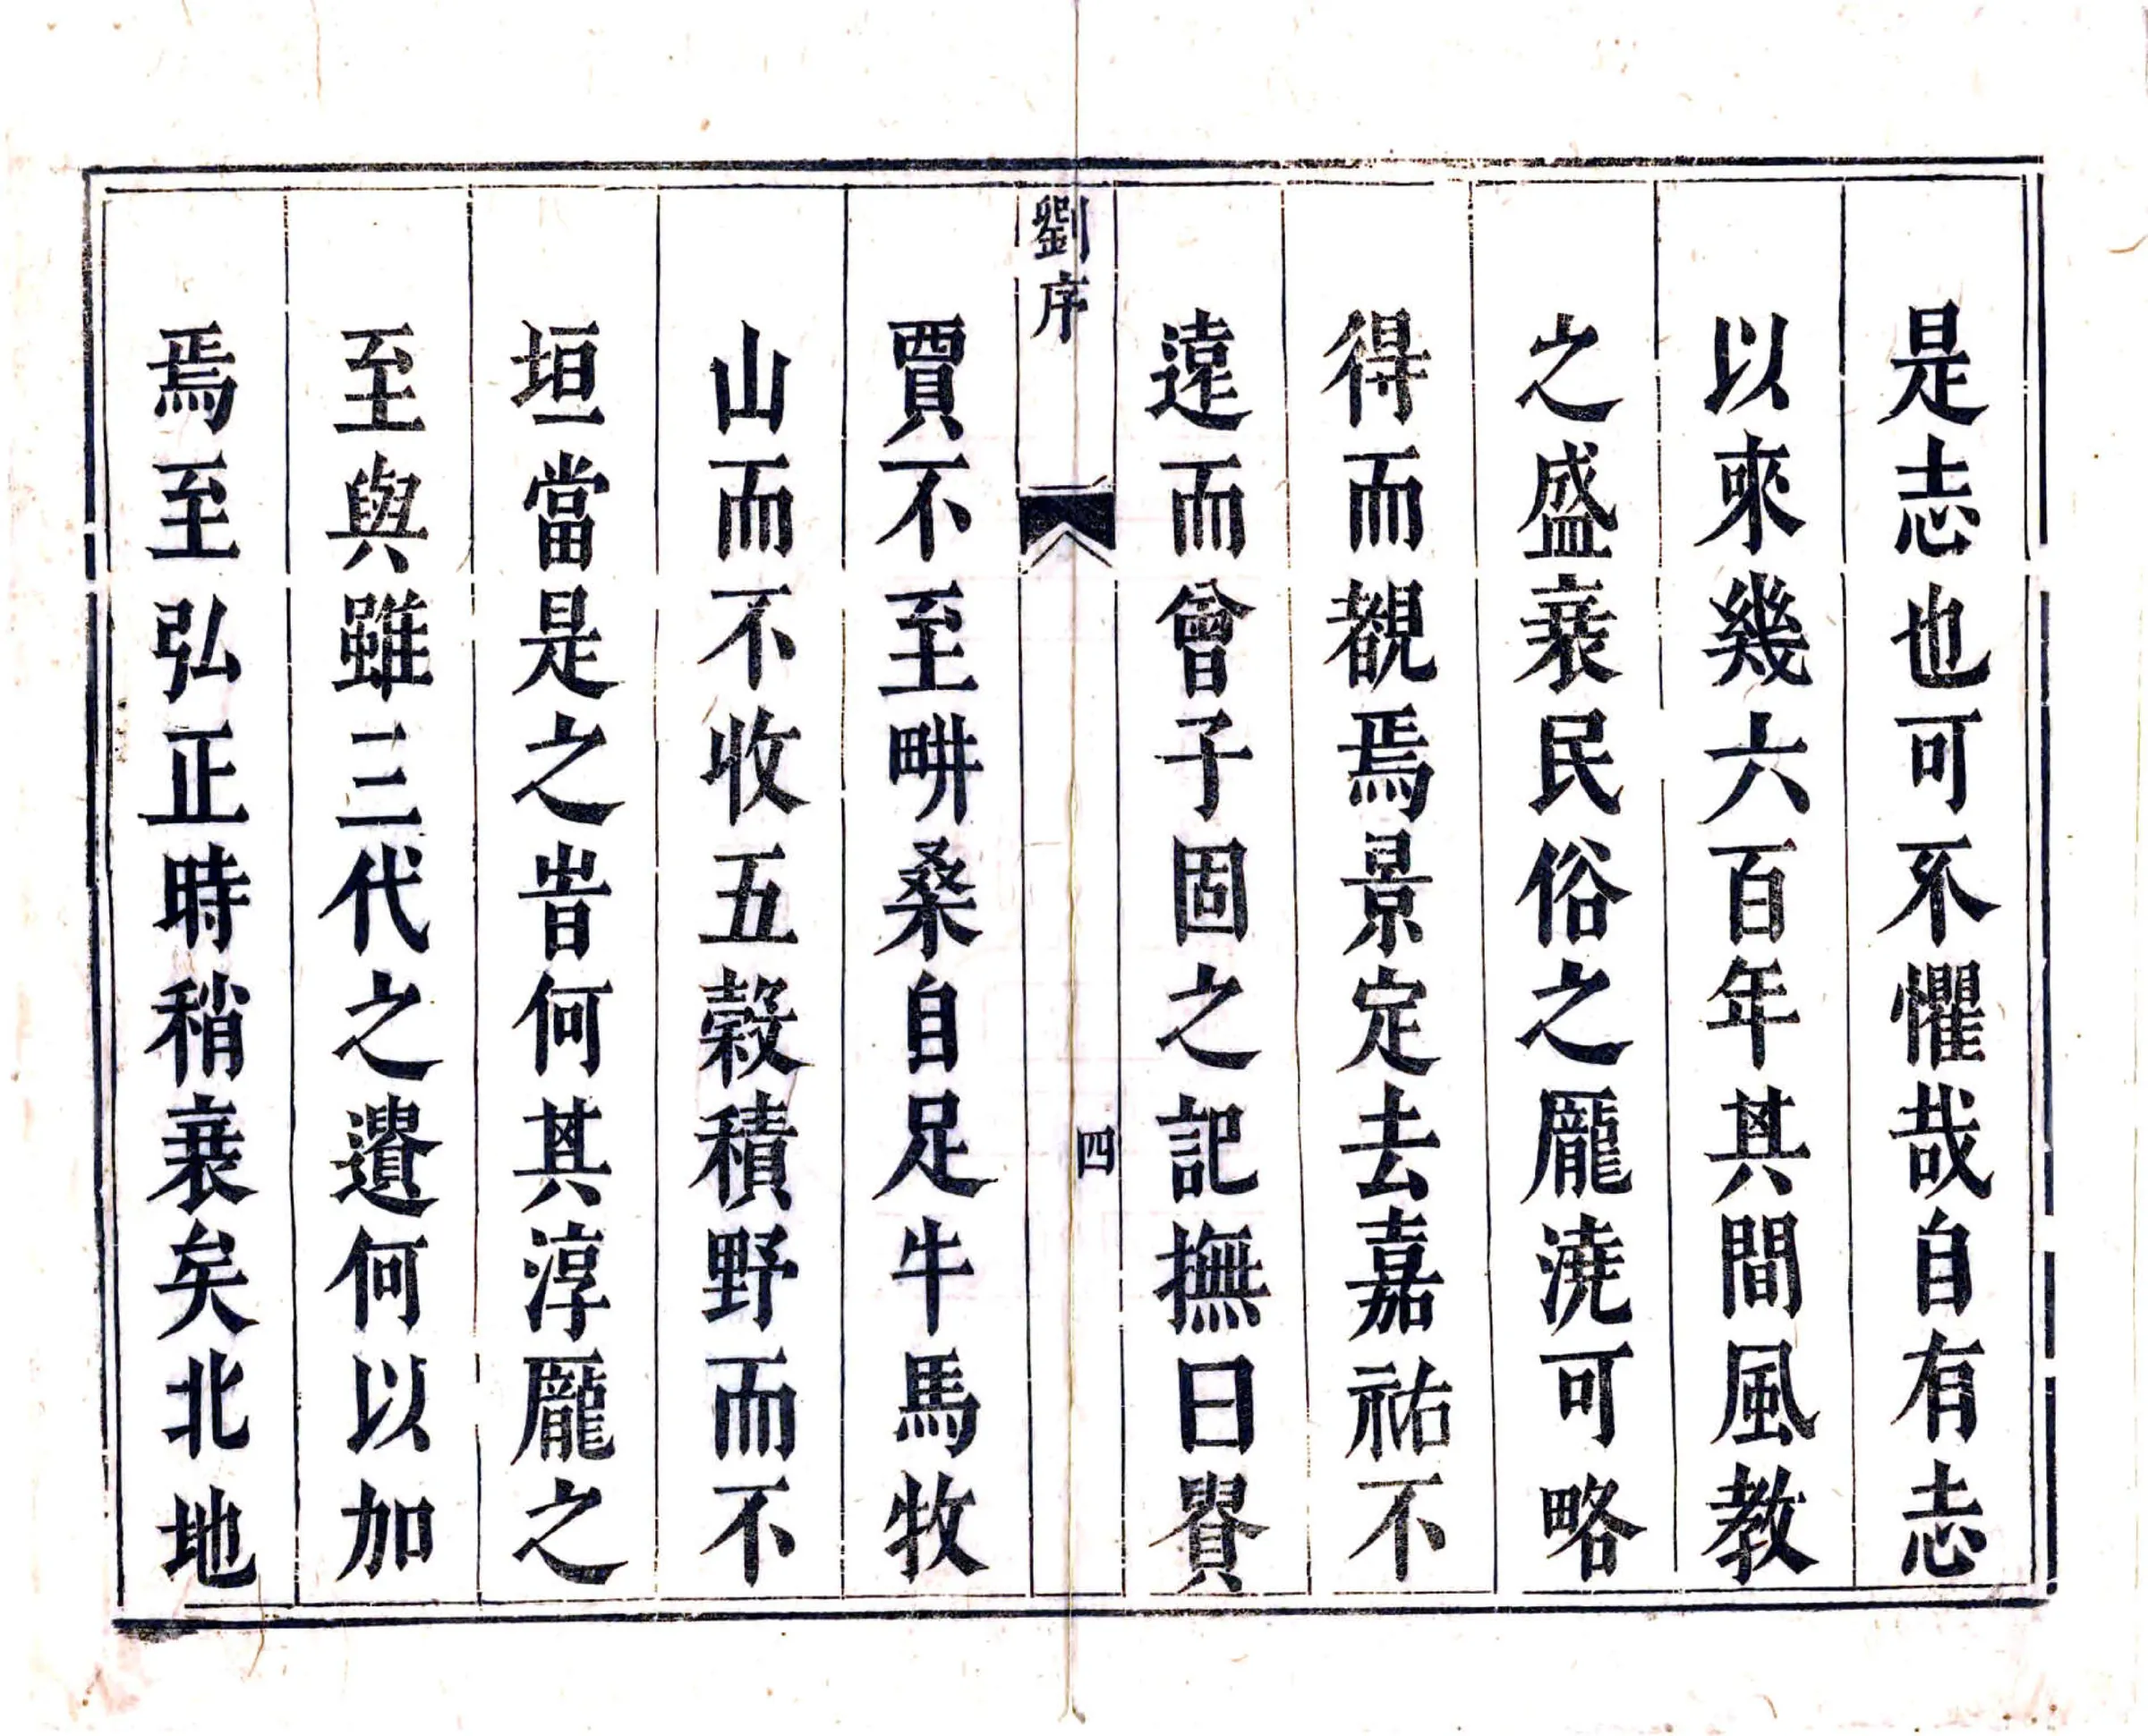 是志也可不懼哉自有志
以來幾六百年其間風教
之盛衰民俗之龎澆可略
得而覩焉景定去嘉祐不
遠而曾子固之記撫曰賮
劉序
四
賈不至畊桑自足牛馬牧
山而不收五穀積野而不
垣當是之旹何其淳龎之
至與雖三代之遺何以加
焉至弘正時稍衰矣北地